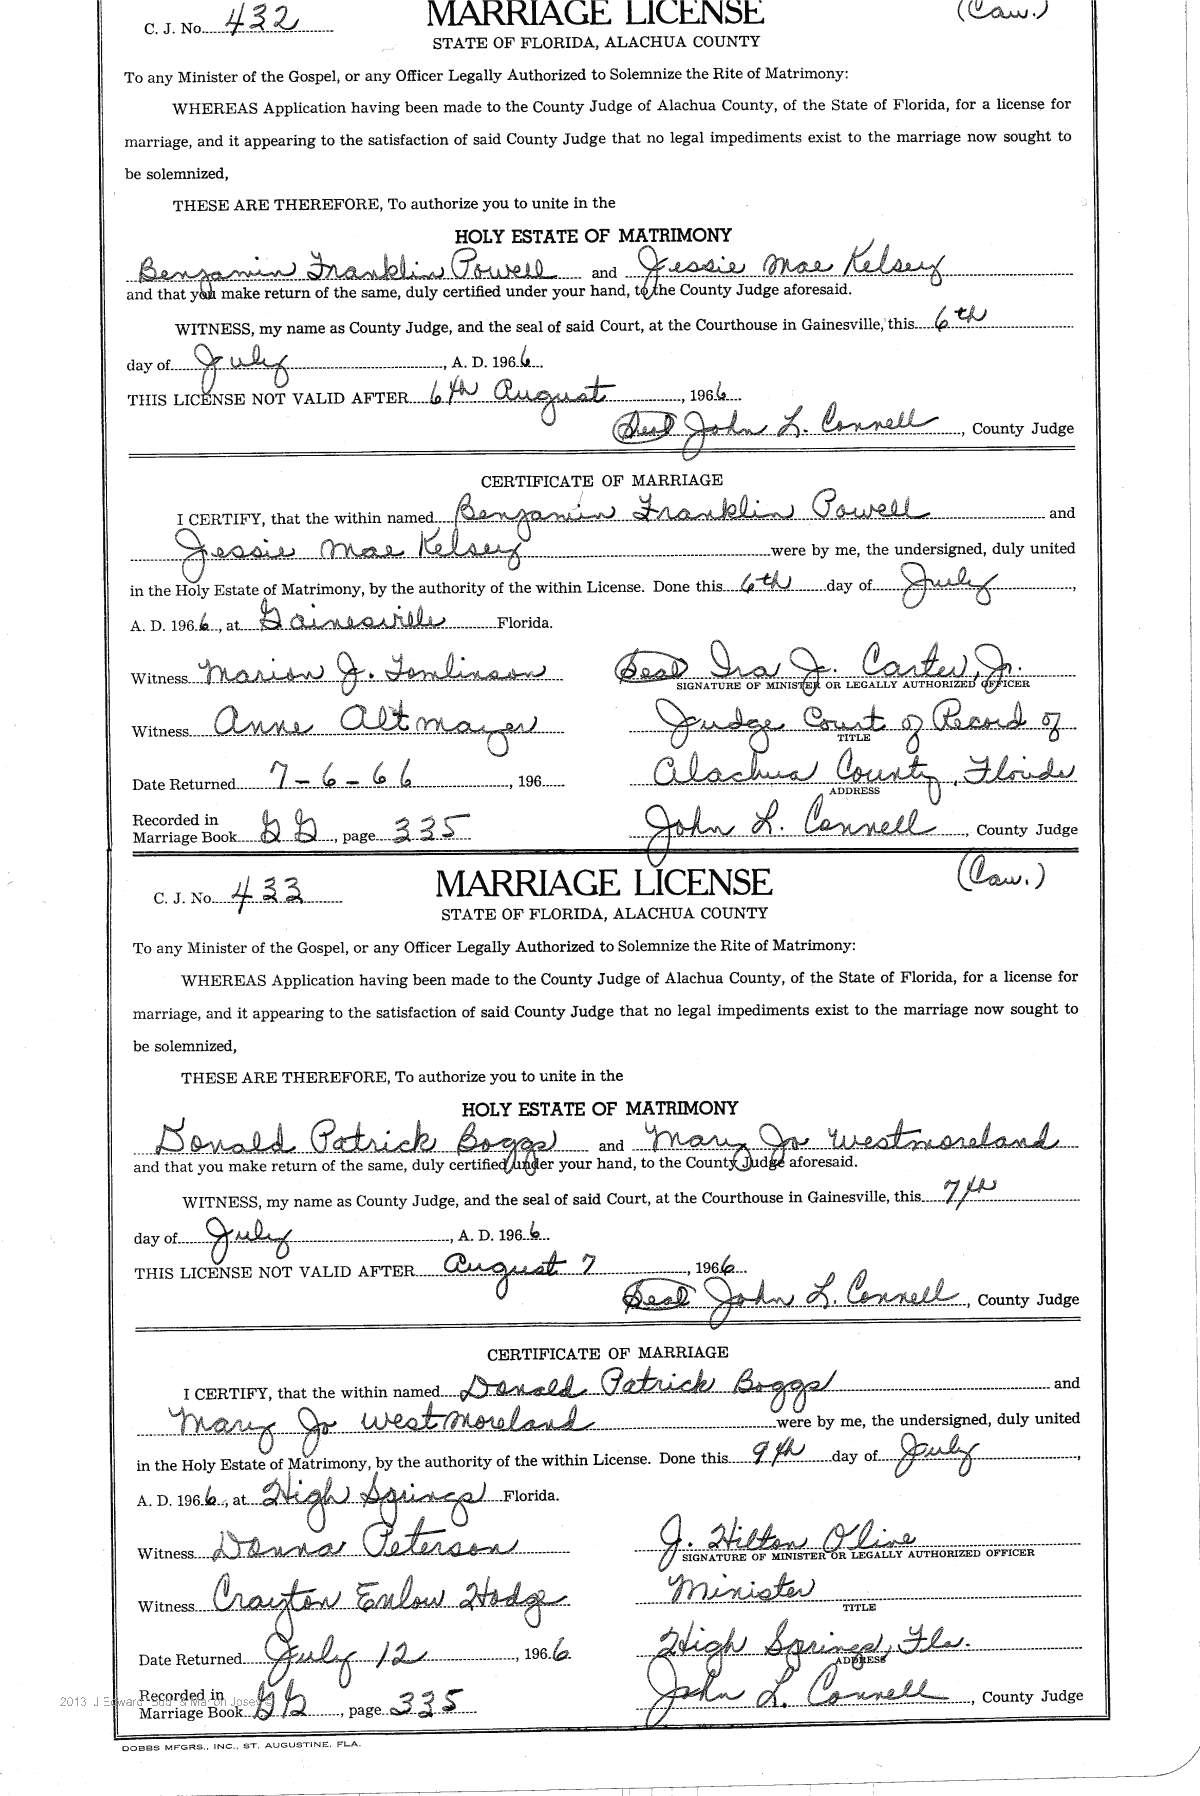 C. J. No. 432 MARRIAGE LICENSE (Caw.)
STATE OF FLORIDA, ALACHUA COUNTY
To any Minister of the Gospel, or any Officer Legally Authorized to Solemnize the Rite of Matrimony:
WHEREAS Application having been made to the County Judge of Alachua County, of the State of Florida, for a license for
marriage, and it appearing to the satisfaction of said County Judge that no legal impediments exist to the marriage now sought to
be solemnized,
THESE ARE THEREFORE, To authorize you to unite in the
HOLY ESTATE OF MATRIMONY
Benjamin Franklin Powell and Jessie Mae Kelsey
and that you make return of the same, duly certified under your hand, to the County Judge aforesaid.
WITNESS, my name as County Judge, and the seal of said Court, at the Courthouse in Gainesville, this 6th
day of July, A. D. 1966
THIS LICENSE NOT VALID AFTER 6th August, 1966
(Seal) John L. Connell, County Judge
CERTIFICATE OF MARRIAGE
I CERTIFY, that the within named Benjamin Franklin Powell and
Jessie Mae Kelsey were by me, the undersigned, duly united
in the Holy Estate of Matrimony, by the authority of the within License. Done this 6th day of July,
A. D. 1966, at Gainesville Florida.
Witness Marion J. Tomlinson (Seal) Ira J. Carter, Jr.
SIGNATURE OF MINISTER OR LEGALLY AUTHORIZED OFFICER
Witness Anne Altmayer Judge Court of Record of
TITLE
Date Returned 7-6-66, 196 Alachua County, Florida
ADDRESS
Recorded in
Marriage Book GG, page 335 John L. Connell, County Judge
C. J. No. 433 MARRIAGE LICENSE (Caw.)
STATE OF FLORIDA, ALACHUA COUNTY
To any Minister of the Gospel, or any Officer Legally Authorized to Solemnize the Rite of Matrimony:
WHEREAS Application having been made to the County Judge of Alachua County, of the State of Florida, for a license for
marriage, and it appearing to the satisfaction of said County Judge that no legal impediments exist to the marriage now sought to
be solemnized,
THESE ARE THEREFORE, To authorize you to unite in the
HOLY ESTATE OF MATRIMONY
Donald Patrick Boggs and Mary Jo Westmoreland
and that you make return of the same, duly certified under your hand, to the County Judge aforesaid.
WITNESS, my name as County Judge, and the seal of said Court, at the Courthouse in Gainesville, this 7th
day of July, A. D. 1966
THIS LICENSE NOT VALID AFTER August 7, 1966
(Seal) John L. Connell, County Judge
CERTIFICATE OF MARRIAGE
I CERTIFY, that the within named Donald Patrick Boggs and
Mary Jo Westmoreland were by me, the undersigned, duly united
in the Holy Estate of Matrimony, by the authority of the within License. Done this 9th day of July,
A. D. 1966, at High Springs Florida.
Witness Donna Peterson J. Hilton O'line
SIGNATURE OF MINISTER OR LEGALLY AUTHORIZED OFFICER
Witness Crayton Enlow Hodge Minister
TITLE
Date Returned July 12, 1966 High Springs, Fla.
ADDRESS
Recorded in
Marriage Book GG, page 335 John L. Connell, County Judge
DOBBS MFGRS., INC., ST. AUGUSTINE, FLA.